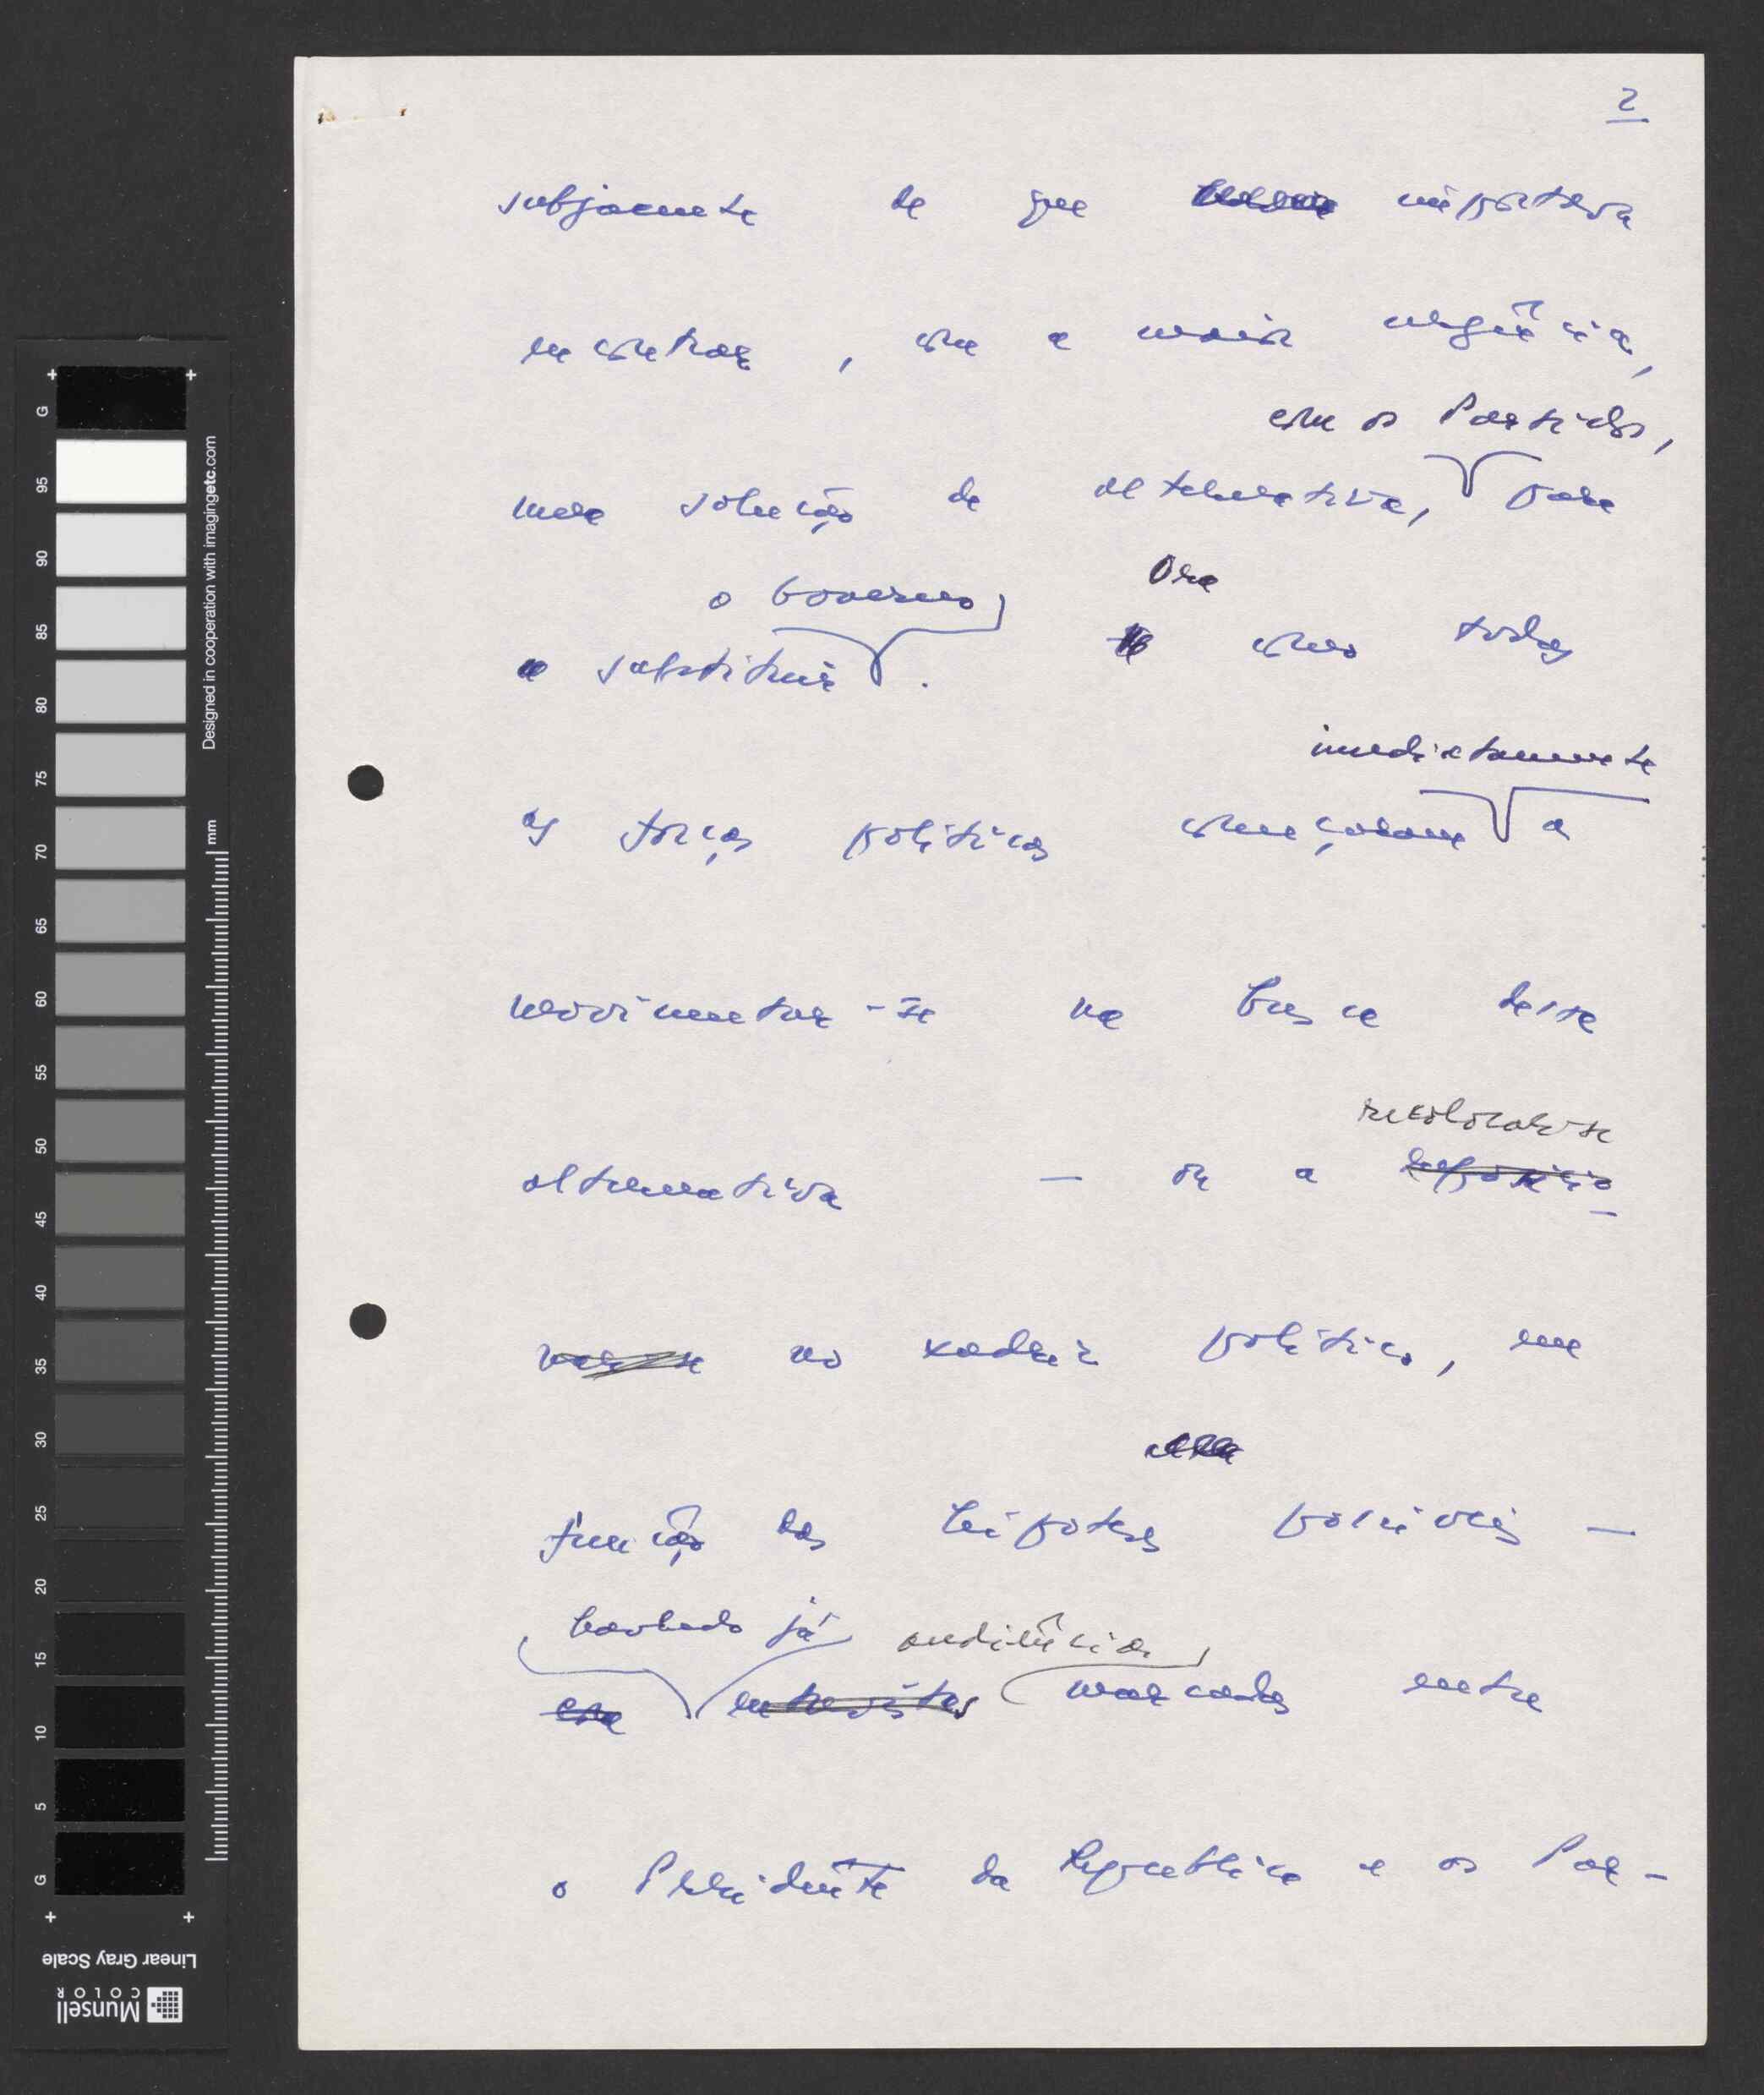 2
subjacente de que importava
encontrar, com a maior urgência,
com os Partidos,
uma solução de alternativa, para
o Governo
o substituir.
Ora
como todas
imediatamente
as forças políticas começaram a
movimentar-se na busca dessa
recolocar-se
alternativa — ou a reposicio-
nar-se no xadrez político, em
função das hipóteses possíveis —
havendo já audiências
com entrevistas marcadas entre
o Presidente da República e os Par-
Designed in cooperation with imagingetc.com
mm
G 95 90 85 80 75 70 65 60 55 50 45 40 35 30 25 20 15 10 5 G
Linear Gray Scale
Munsell
COLOR